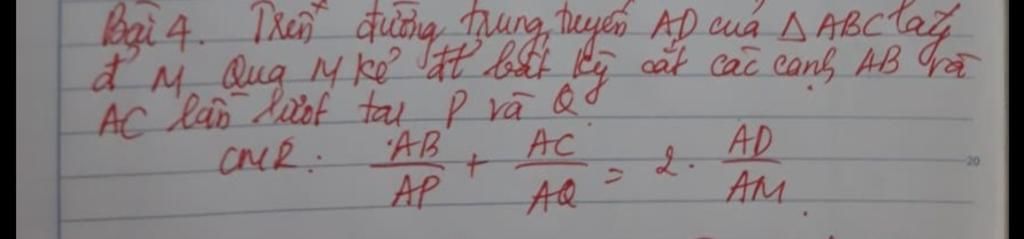 Bài 4. Trên đường trung tuyến AD của Δ ABC lấy
đ' M Qua M kẻ đt bất kỳ cắt các cạnh AB và
AC lần lượt tại P và Q
CMR: AB/AP + AC/AQ = 2. AD/AM.
20